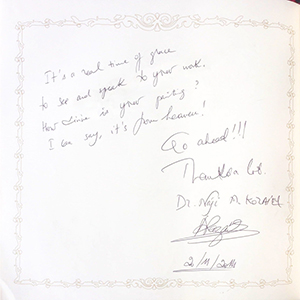 It's a real time of grace
to see and speak to your work.
How divine is your going?
I can say, it's from heaven!
Go ahead!!!
Thanks a lot.
Dr. M.
2/11/2014